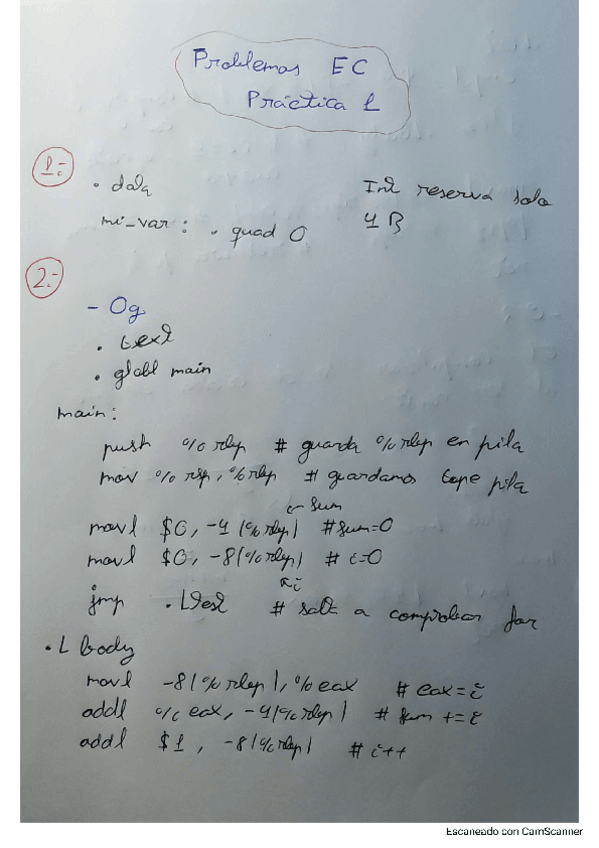 Problemas EC
Práctica 1
1:-
. data
mi_var: . quad 0
Int reserva solo
4 B
2:-
- Og
. text
. globl main
main:
push %rbp # guarda %rbp en pila
mov %rsp, %rbp # guardamos tope pila
← sum
movl $0, -4(%rbp) #sum=0
movl $0, -8(%rbp) # i=0
↖ i
jmp .Ltest # salta a comprobar for
.L body
movl -8(%rbp), %eax # eax = i
addl %eax, -4(%rbp) # sum += i
addl $1, -8(%rbp) # i++
Escaneado con CamScanner